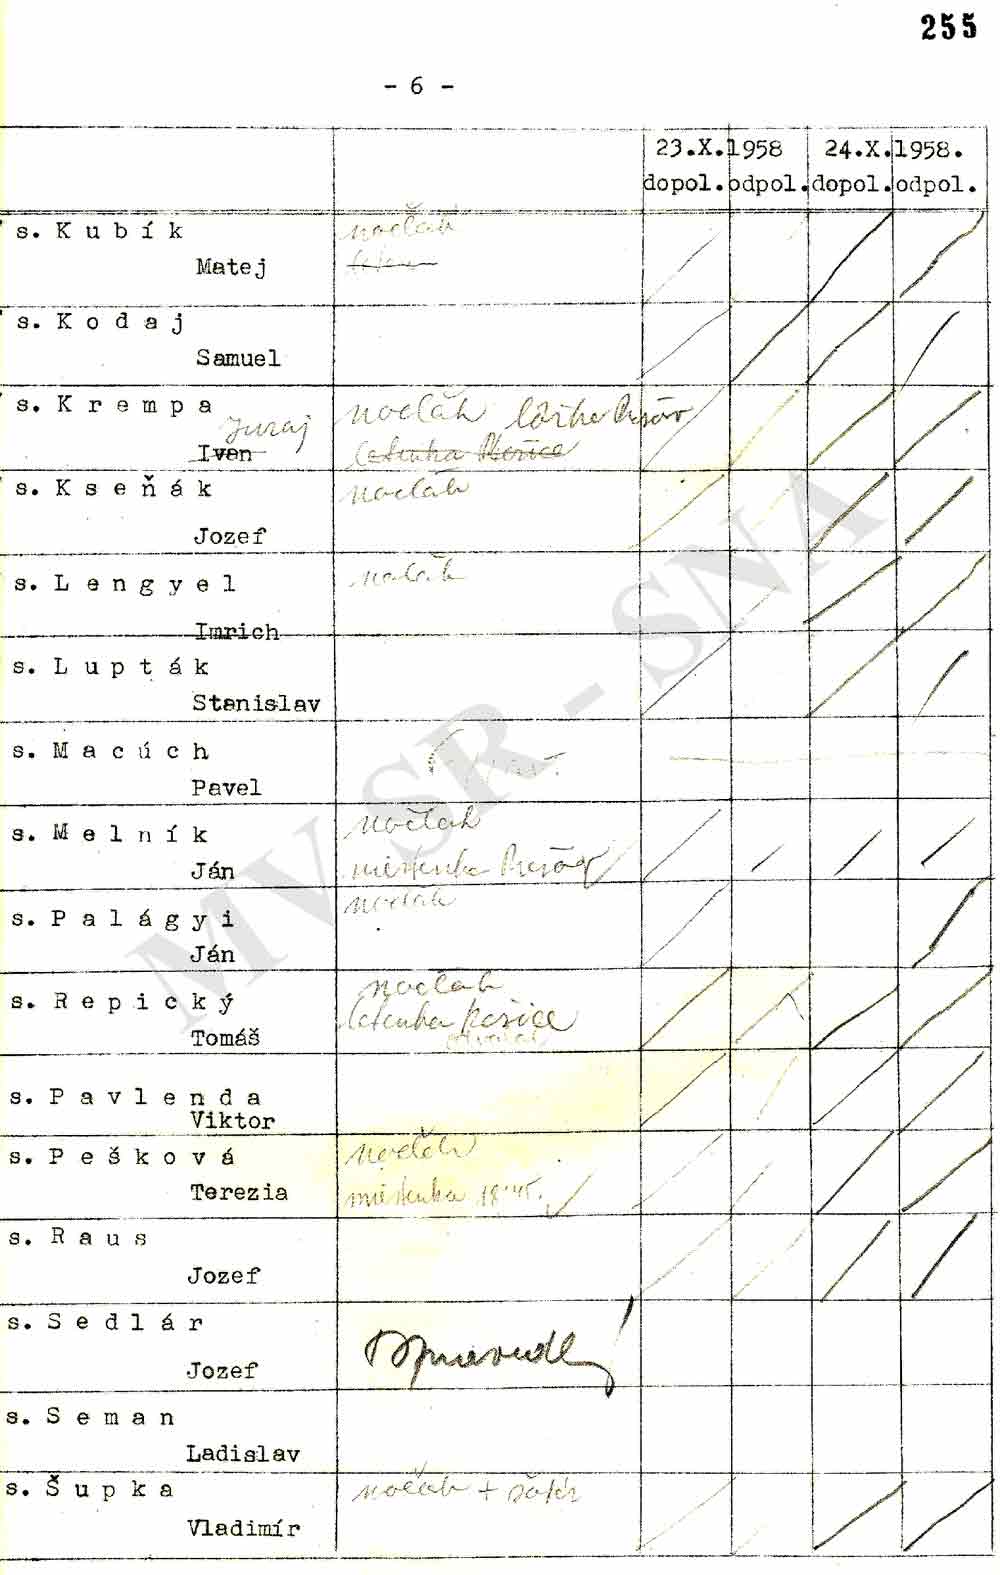 255
- 6 -
23.X.1958 24.X.1958.
dopol. odpol. dopol. odpol.
s. Kubík nocľah
Matej
s. Kodaj
Samuel
s. Krempa nocľah
Juraj
Ivan letenka Košice
s. Kseňák nocľah
Jozef
s. Lengyel nocľah
Imrich
s. Lupták
Stanislav
s. Macúch
Pavel
s. Melník nocľah
Ján miestenka Prešov
s. Palágyi nocľah
Ján
s. Repický nocľah
letenka Košice
Tomáš
s. Pavlenda
Viktor
s. Pešková nocľah
Terezia miestenka 18.45.
s. Raus
Jozef
s. Sedlár
Jozef
s. Seman
Ladislav
s. Šupka nocľah +
Vladimír
MV SR - SNA